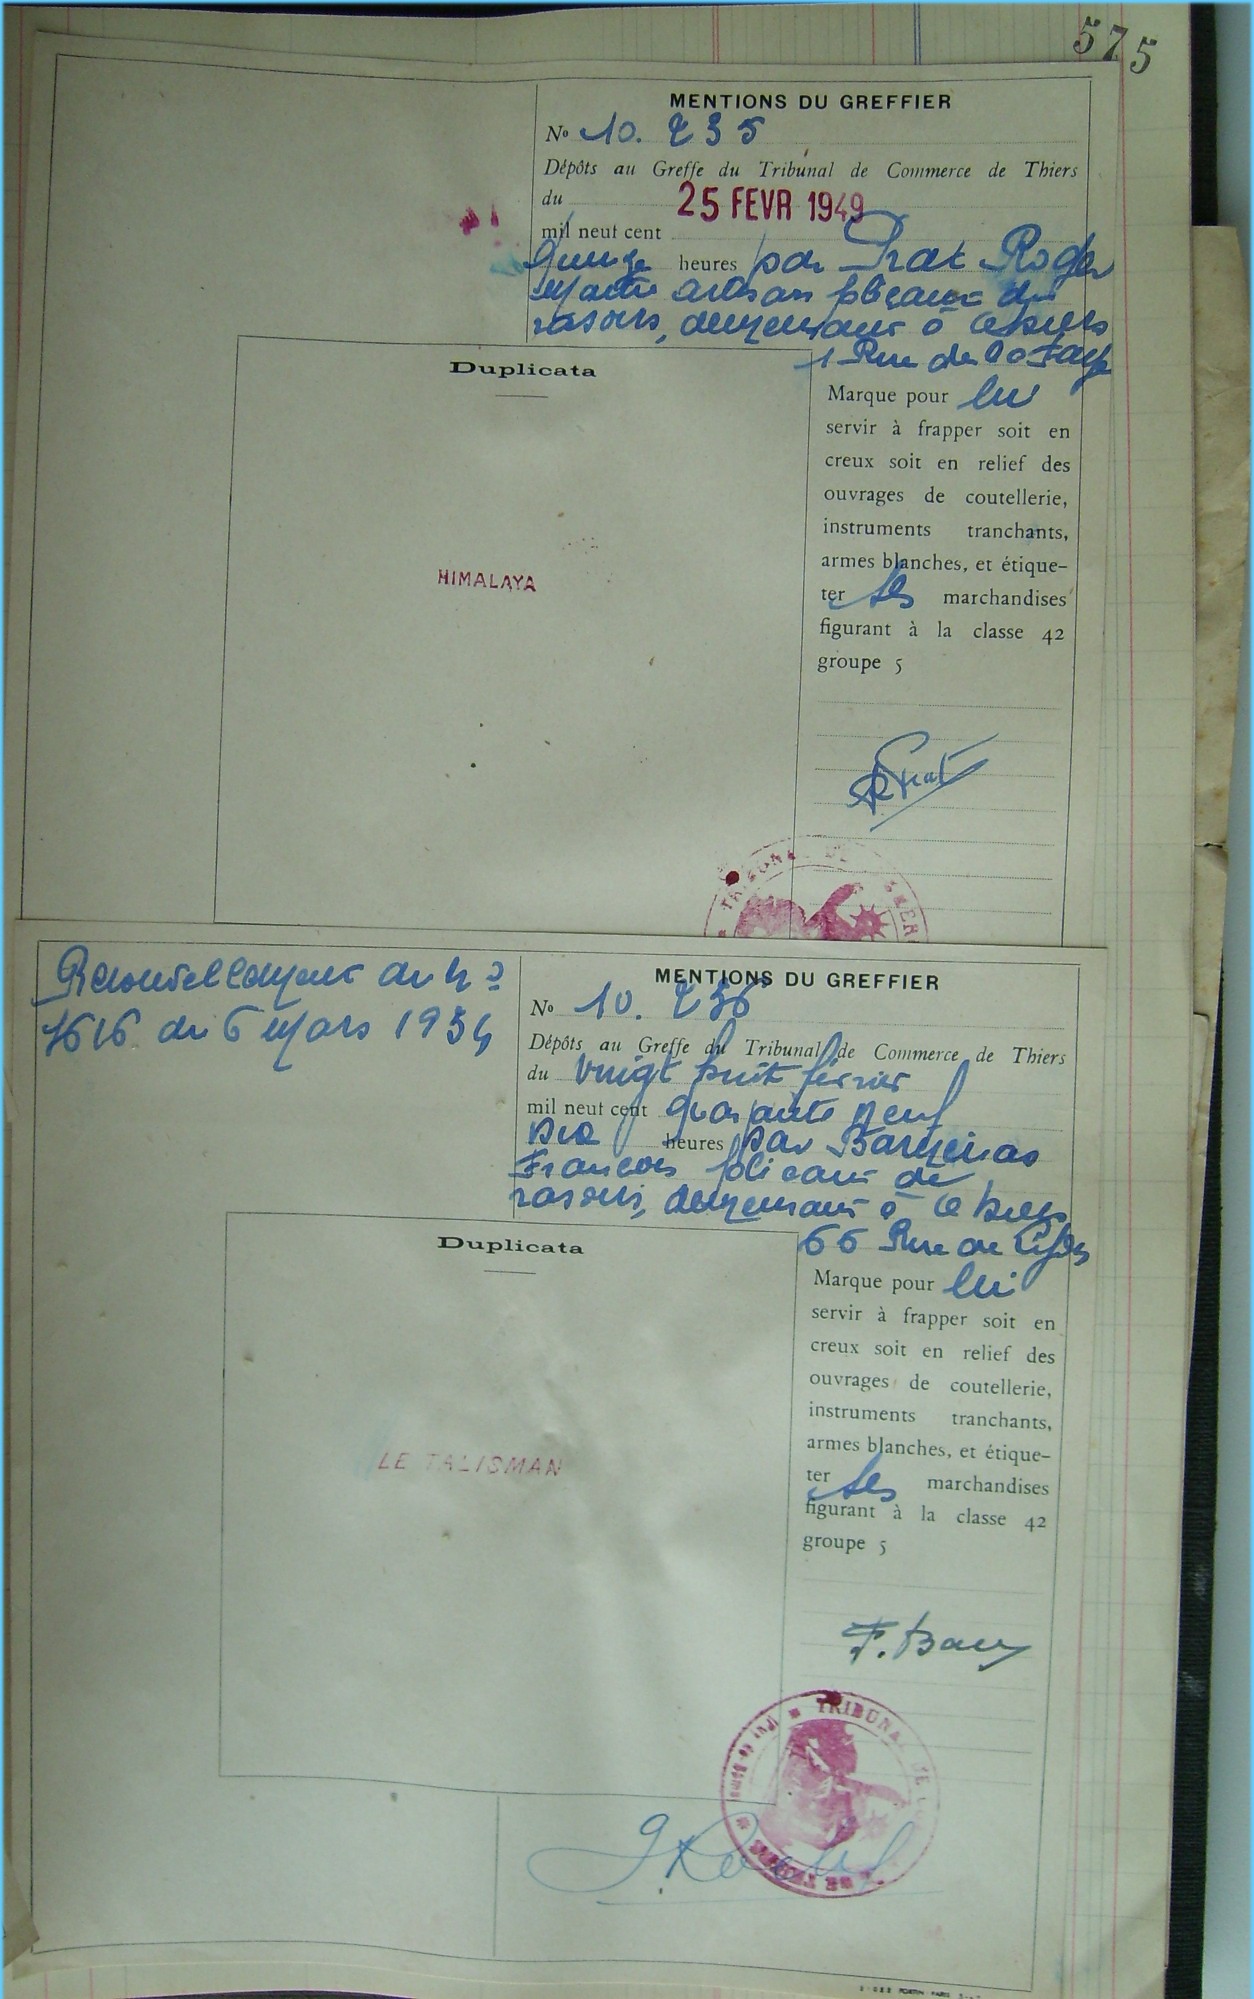 575
MENTIONS DU GREFFIER
No 10. 235
Dépôts au Greffe du Tribunal de Commerce de Thiers
du 25 FEVR 1949
mil neuf cent
heures par Prat Roger
artisan
rasoirs, demeurant à
1 Rue de
Duplicata
Marque pour lui
servir à frapper soit en
creux soit en relief des
ouvrages de coutellerie,
instruments tranchants,
armes blanches, et étique-
ter ses marchandises
figurant à la classe 42
groupe 5
HIMALAYA
RPrat
TRIBUNAL DE
Renouvellement du no
7616 du 6 Mars 1934
MENTIONS DU GREFFIER
No 10. 236
Dépôts au Greffe du Tribunal de Commerce de Thiers
du vingt huit février
mil neuf cent quarante neuf
heures par
François de
rasoirs, demeurant à
66 Rue de
Duplicata
Marque pour lui
servir à frapper soit en
creux soit en relief des
ouvrages de coutellerie,
instruments tranchants,
armes blanches, et étique-
ter ses marchandises
figurant à la classe 42
groupe 5
LE TALISMAN
TRIBUNAL DE